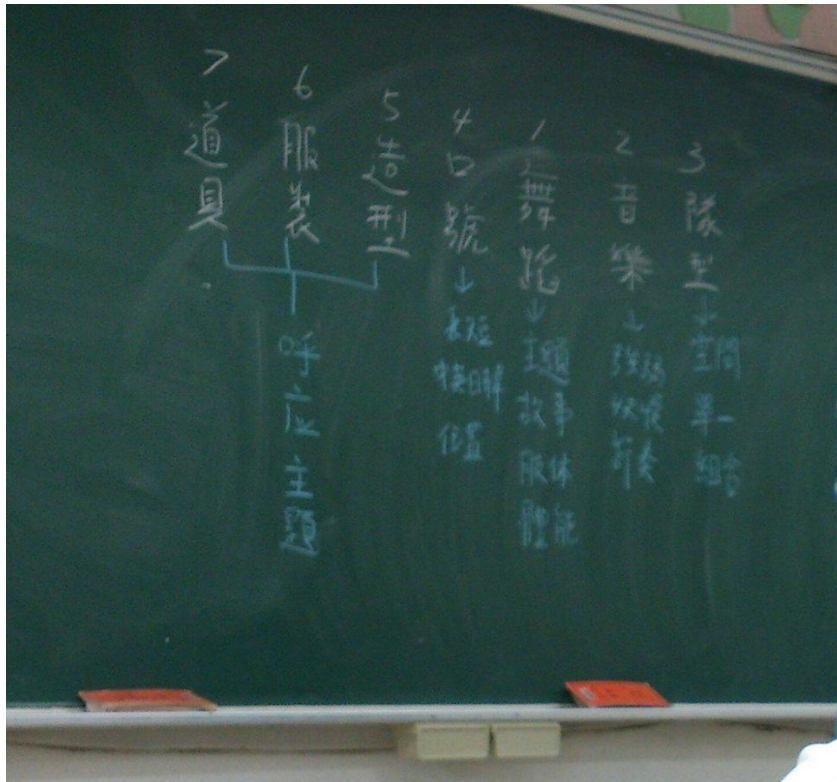 3 隊型↓空間
單一
組合
2 音樂↓強弱
快慢
節奏
1 舞蹈↓主題
故事
肢体
體能
4 口號↓長短
位置
5 造型
6 服裝
7 道具
呼应主題